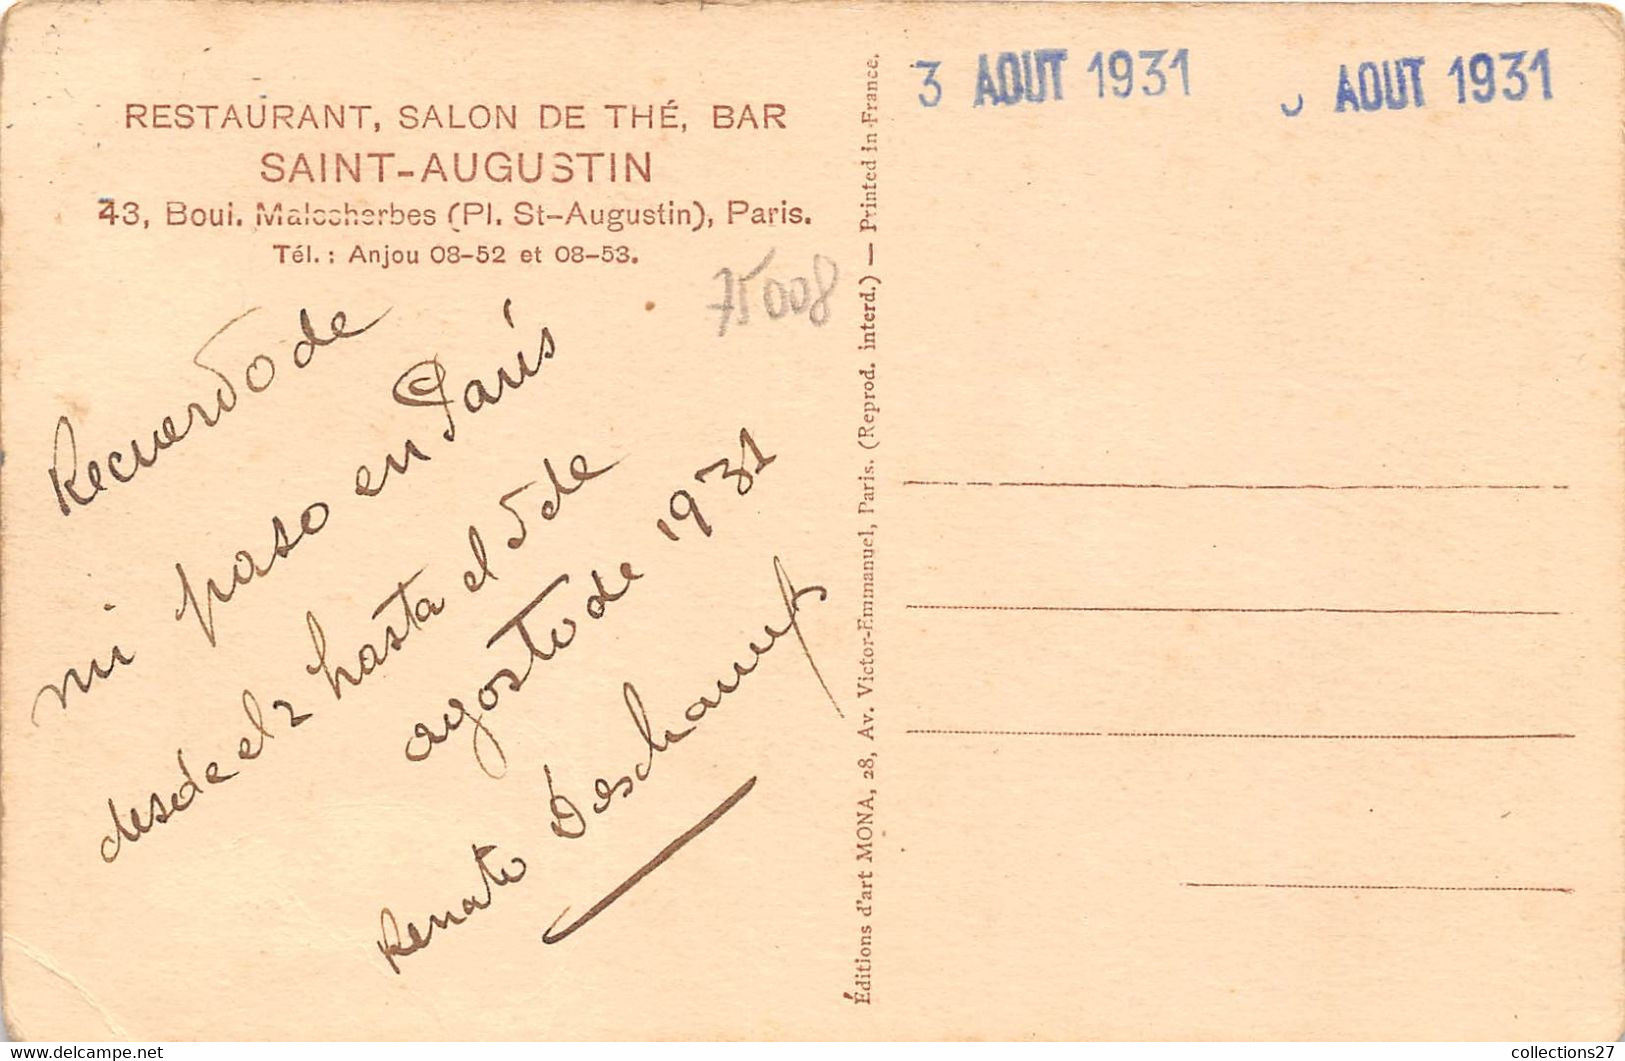 RESTAURANT, SALON DE THÉ, BAR
SAINT-AUGUSTIN
43, Boul. Malesherbes (Pl. St-Augustin), Paris.
Tél. : Anjou 08-52 et 08-53.
75008
Recuerdo de
mi paso en Paris
desde el 2 hasta el 5 de
agosto de 1931
Renato Deschamps
Éditions d'art MONA, 28, Av. Victor-Emmanuel, Paris. (Reprod. interd.) — Printed in France.
3 AOUT 1931
AOUT 1931
collections27